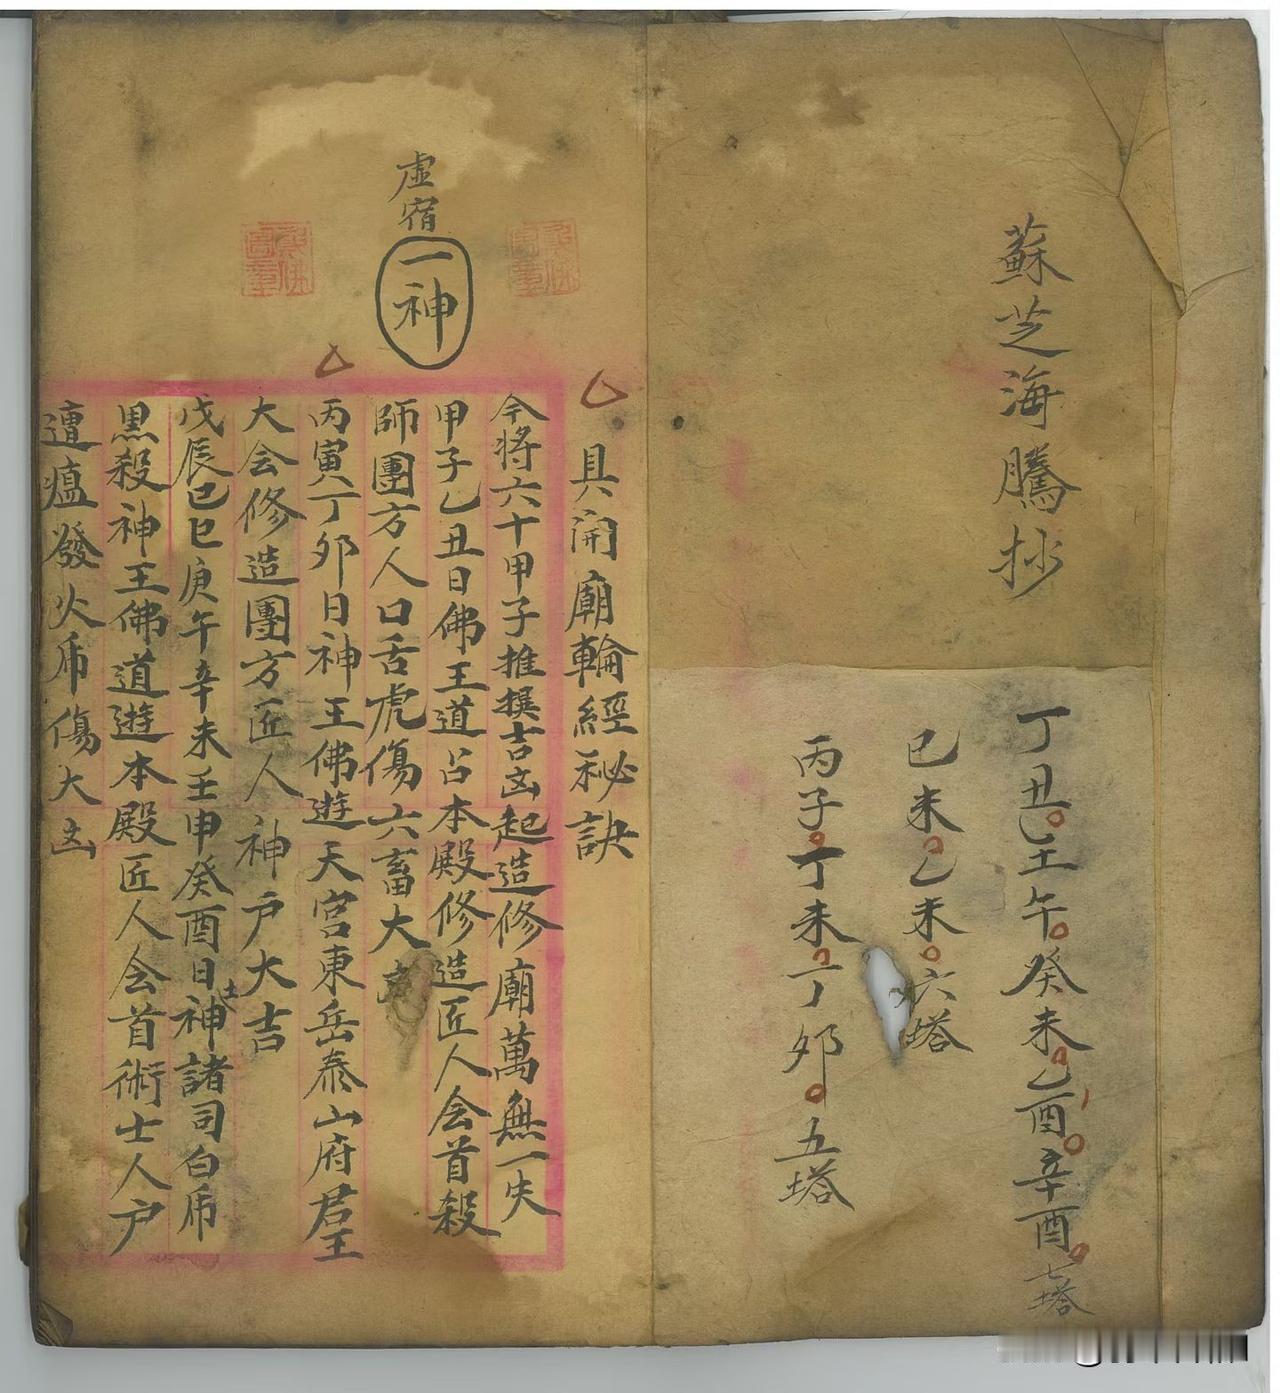 蘇芝海騰抄
丁丑乙土午癸未乙酉辛酉七塔
已未乙未六塔
丙子丁未丁夘五塔
具開廟輪經秘訣
虛宿
一神
今將六十甲子推撰吉凶起造修廟萬無一失
甲子乙丑日佛王道占本殿修造匠人会首殺
師團方人口舌虎傷六畜大
丙寅丁夘日神王佛遊天宮東岳泰山府君王
大会修造團方匠人神户大吉
戊辰已巳庚午辛未壬申癸酉日神諸司白虎
黒殺神王佛道遊本殿匠人会首術士人户
遭瘟發火虎傷大凶